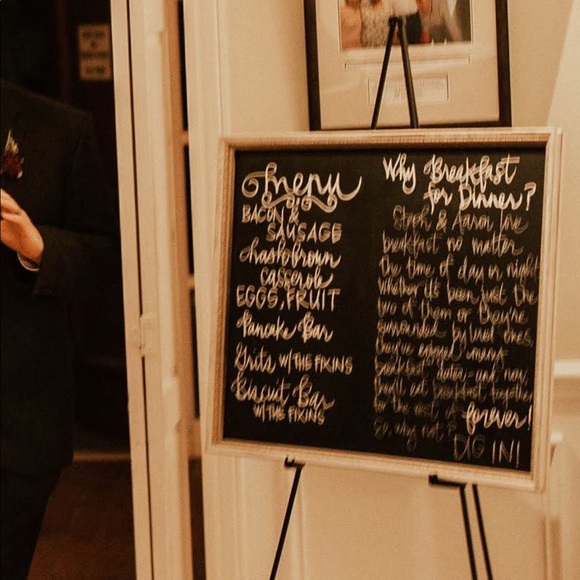 menu
BACON &
SAUSAGE
hashbrown
casserole
EGGS, FRUIT
Pancake Bar
Grits W/ THE FIXINS
Biscuit Bar
W/ THE FIXINS
Why Breakfast
for Dinner?
Steph & Aaron love
breakfast no matter
the time of day or night
whether it's been just the
two of them or they're
surrounded by loved ones,
they've enjoyed many
breakfast dates - and now,
they'll eat breakfast together
for the rest of forever!
So, why not?
DIG IN!